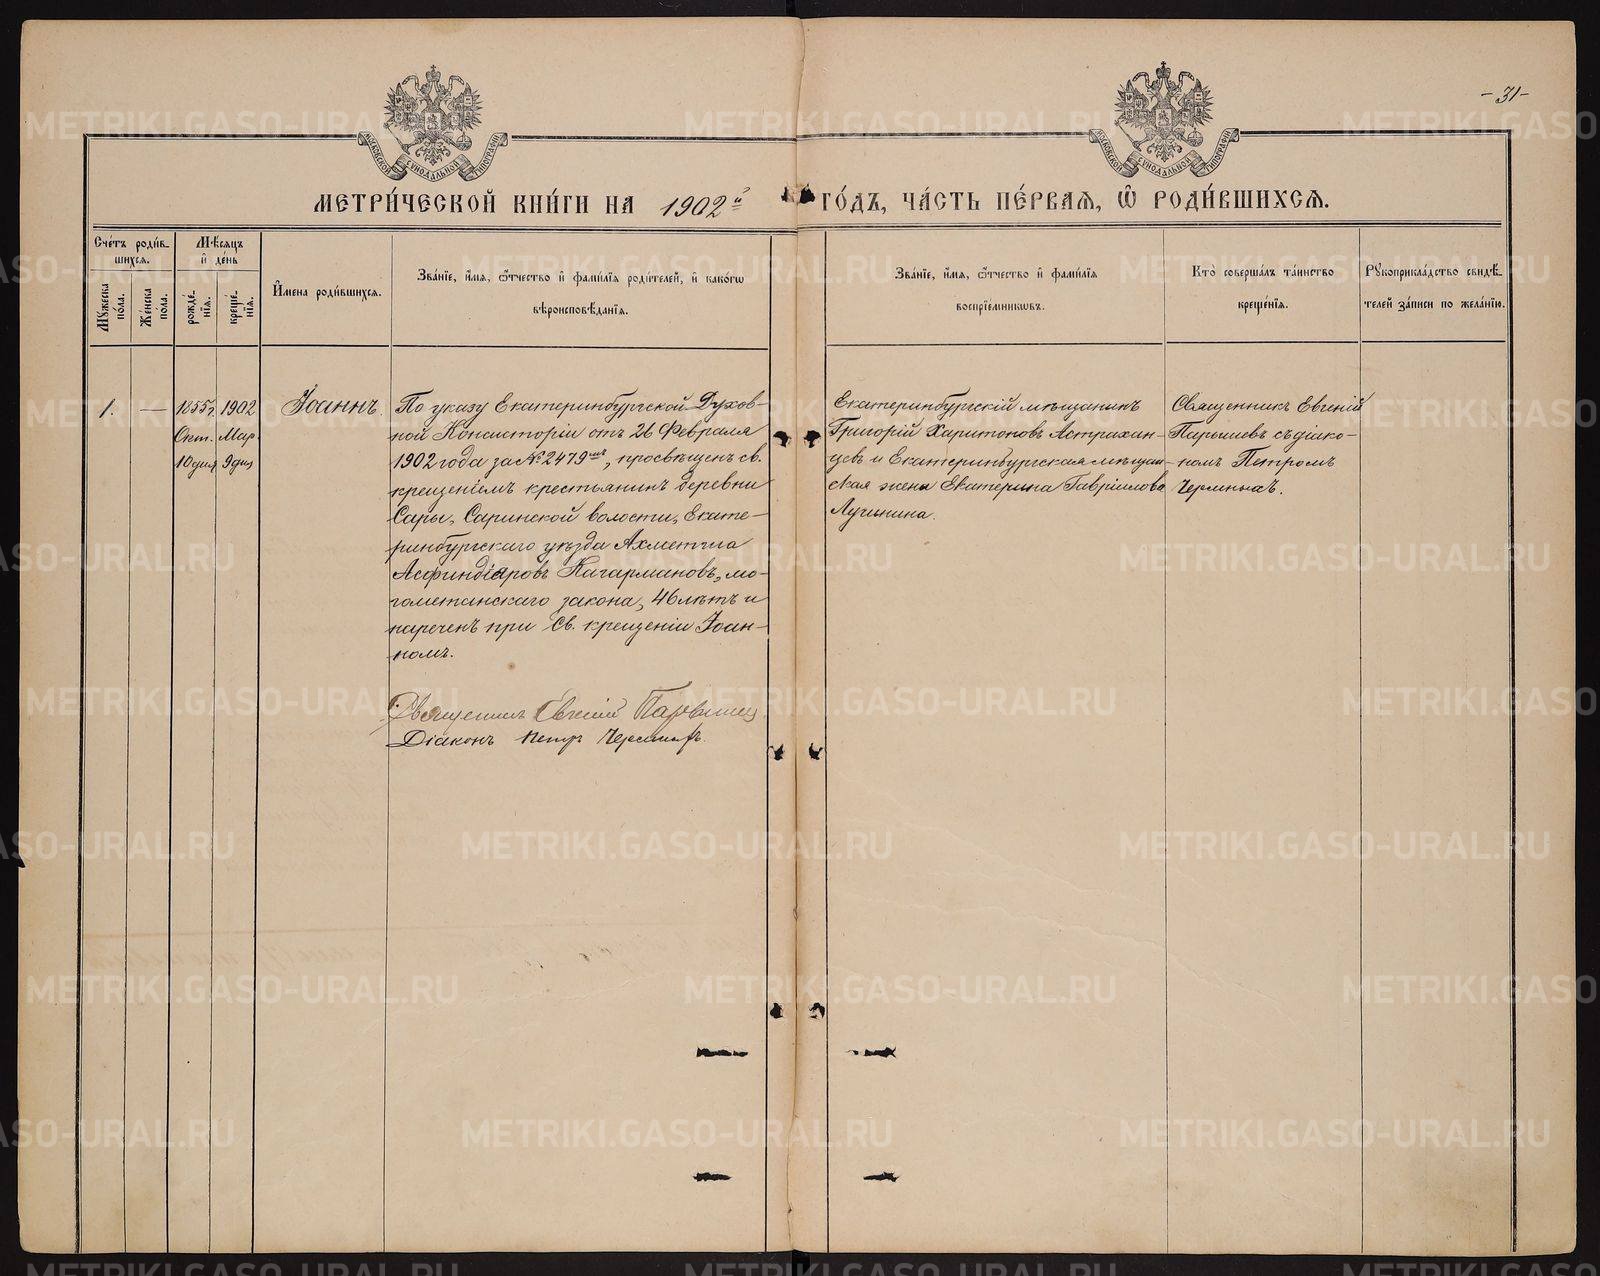 -31-
МОСКОВСКОЙ СѴНОДАЛЬНОЙ ТИПОГРАФІИ
МОСКОВСКОЙ СѴНОДАЛЬНОЙ ТИПОГРАФІИ
МЕТРИ́ЧЕСКОЙ КНИ́ГИ НА 1902й ГО́ДЪ, ЧА́СТЬ ПЕ́РВАѦ, Ѽ РОДИ́ВШИХСѦ.
Сче́тъ роди́в-
шихсѧ.
Мꙋжеска по́ла.
Же́нска по́ла.
Мѣ́сѧцъ
и҆ де́нь
рожде́-
нїѧ.
креще́-
нїѧ.
И҆мена роди́вшихсѧ.
Зва́нїе, и҆́мѧ, ѻ҆́тчество и҆ фами́лїѧ роди́телей, и҆ како́гѡ
вѣроисповѣ́данїѧ.
Зва́нїе, и҆́мѧ, ѻ҆́тчество и҆ фами́лїѧ
воспрїе́мникѡвъ.
Кто̀ соверша́лъ та́инство
креще́нїѧ.
Рꙋкоприкла́дство свидѣ́-
телей за́писи по жела́нїю.
1.
—
1855г.
Окт.
10 дня
1902
Мар.
9 дня
Іоаннъ.
По указу Екатеринбургской Духов-
ной Консисторіи отъ 26 Февраля
1902 года за № 2479мъ, просвѣщенъ св.
крещеніемъ крестьянинъ деревни
Сары, Саринской волости, Екате-
ринбургскаго уѣзда Ахметша
Асфиндіяровъ Кагармановъ, мо-
гометанскаго закона, 46 лѣтъ и
нареченъ при Св. крещеніи Іоан-
номъ.
Священникъ Евгеній Парышевъ
Діаконъ Петръ
Екатеринбургскій мѣщанинъ
Григорій Харитоновъ Астрахан-
цевъ и Екатеринбургская мѣщан-
ская жена Екатерина Гавріилова
Лучинина.
Священникъ Евгеній
Парышевъ съ діако-
номъ Петромъ
METRIKI.GASO-URAL.RU